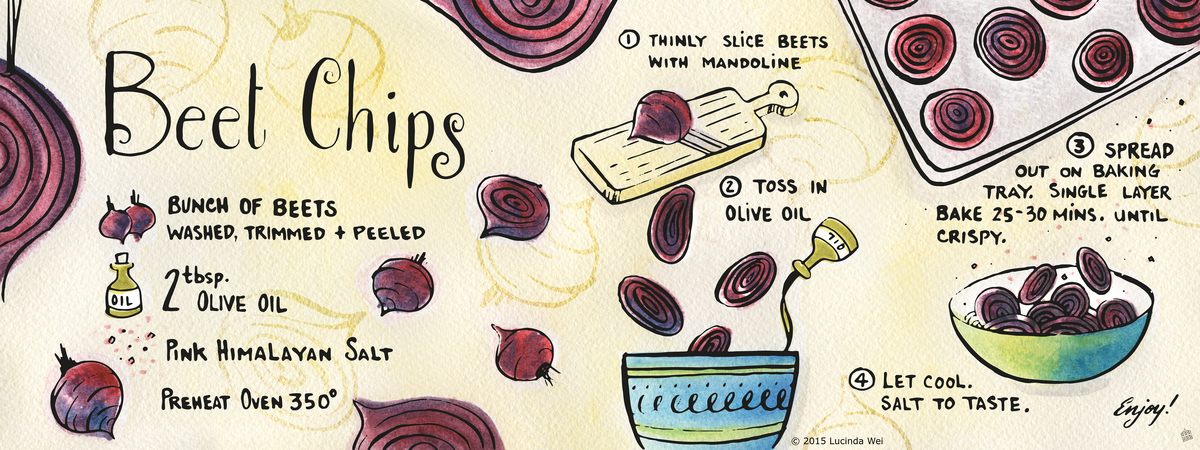 Beet Chips
BUNCH OF BEETS
WASHED, TRIMMED + PEELED
OIL
2 tbsp.
OLIVE OIL
PINK HIMALAYAN SALT
PREHEAT OVEN 350°
1 THINLY SLICE BEETS
WITH MANDOLINE
2 TOSS IN
OLIVE OIL
OIL
3 SPREAD
OUT ON BAKING
TRAY. SINGLE LAYER
BAKE 25-30 MINS. UNTIL
CRISPY.
4 LET COOL.
SALT TO TASTE.
Enjoy!
© 2015 Lucinda Wei